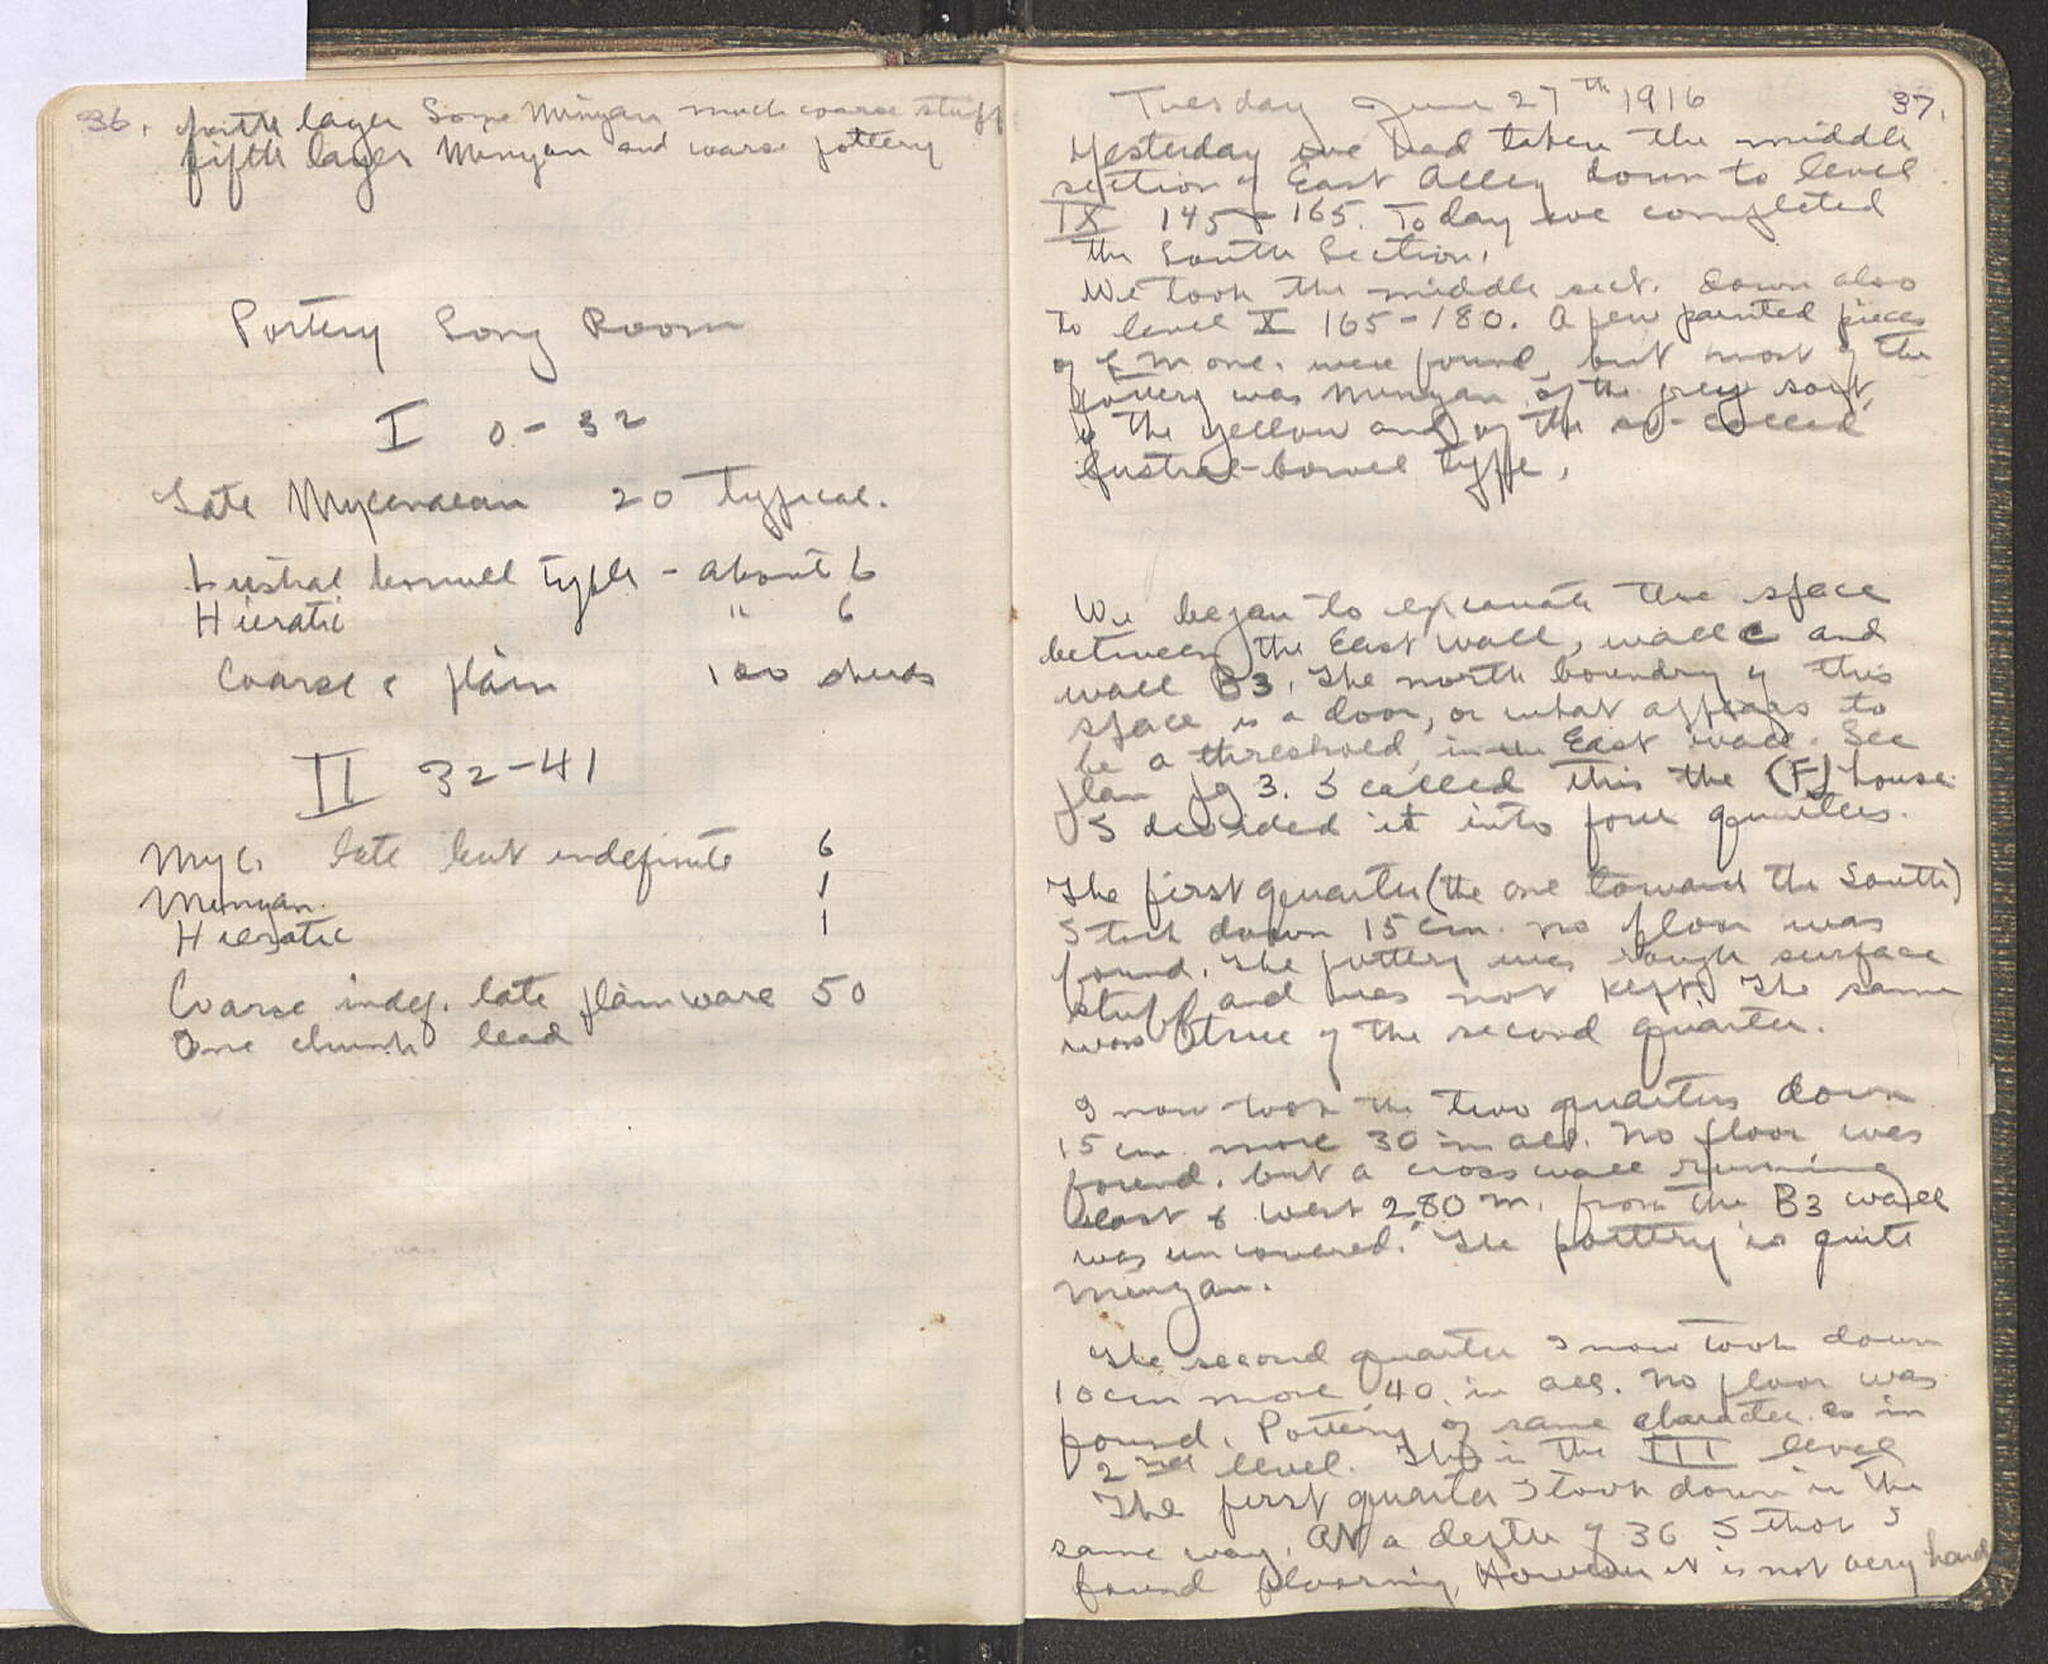 36.
forth layer Some Minyan much coarse stuff
fifth layer Minyan and coarse pottery
Pottery Long Room
I 0-32
Late Mycenaean 20 typical.
Lustral bowl type - about 6
Hieratic " 6
Coarse & plain 100 sherds
II 32-41
Myc. late but indefinite 6
Minyan. 1
Hieratic 1
Coarse indef. late plain ware 50
One chunk lead
37.
Tuesday June 27th 1916
Yesterday we had taken the middle
section of East Alley down to level
IX 145-165. Today we completed
the South Section.
We took the middle sect. down also
to level X 165-180. A few painted pieces
of L M one. were found, but most of the
pottery was Minyan of the grey sort,
of the yellow and of the so-called
lustral-bowl type.
We began to excavate the space
between the East wall, wall C and
wall B3. The north boundry of this
space is a door, or what appears to
be a threshold, in the East wall. See
plan pg 3. I called this the (F) house
I devided it into four quarters.
The first quarter (the one toward the South)
I took down 15 cm. no floor was
found. The pottery was rough surface
stuff and was not kept. The same
was true of the second quarter.
I now took the two quarters down
15 cm more 30 in all. No floor was
found. but a cross wall running
east & west 2.80 m. from the B3 wall
was uncovered. The pottery is quite
Minyan.
The second quarter I now took down
10 cm more, 40. in all. No floor was
found. Pottery of same character as in
2nd level. This is the III level
The first quarter I took down in the
same way. At a depth of 36 I thot I
found flooring, However it is not very hard